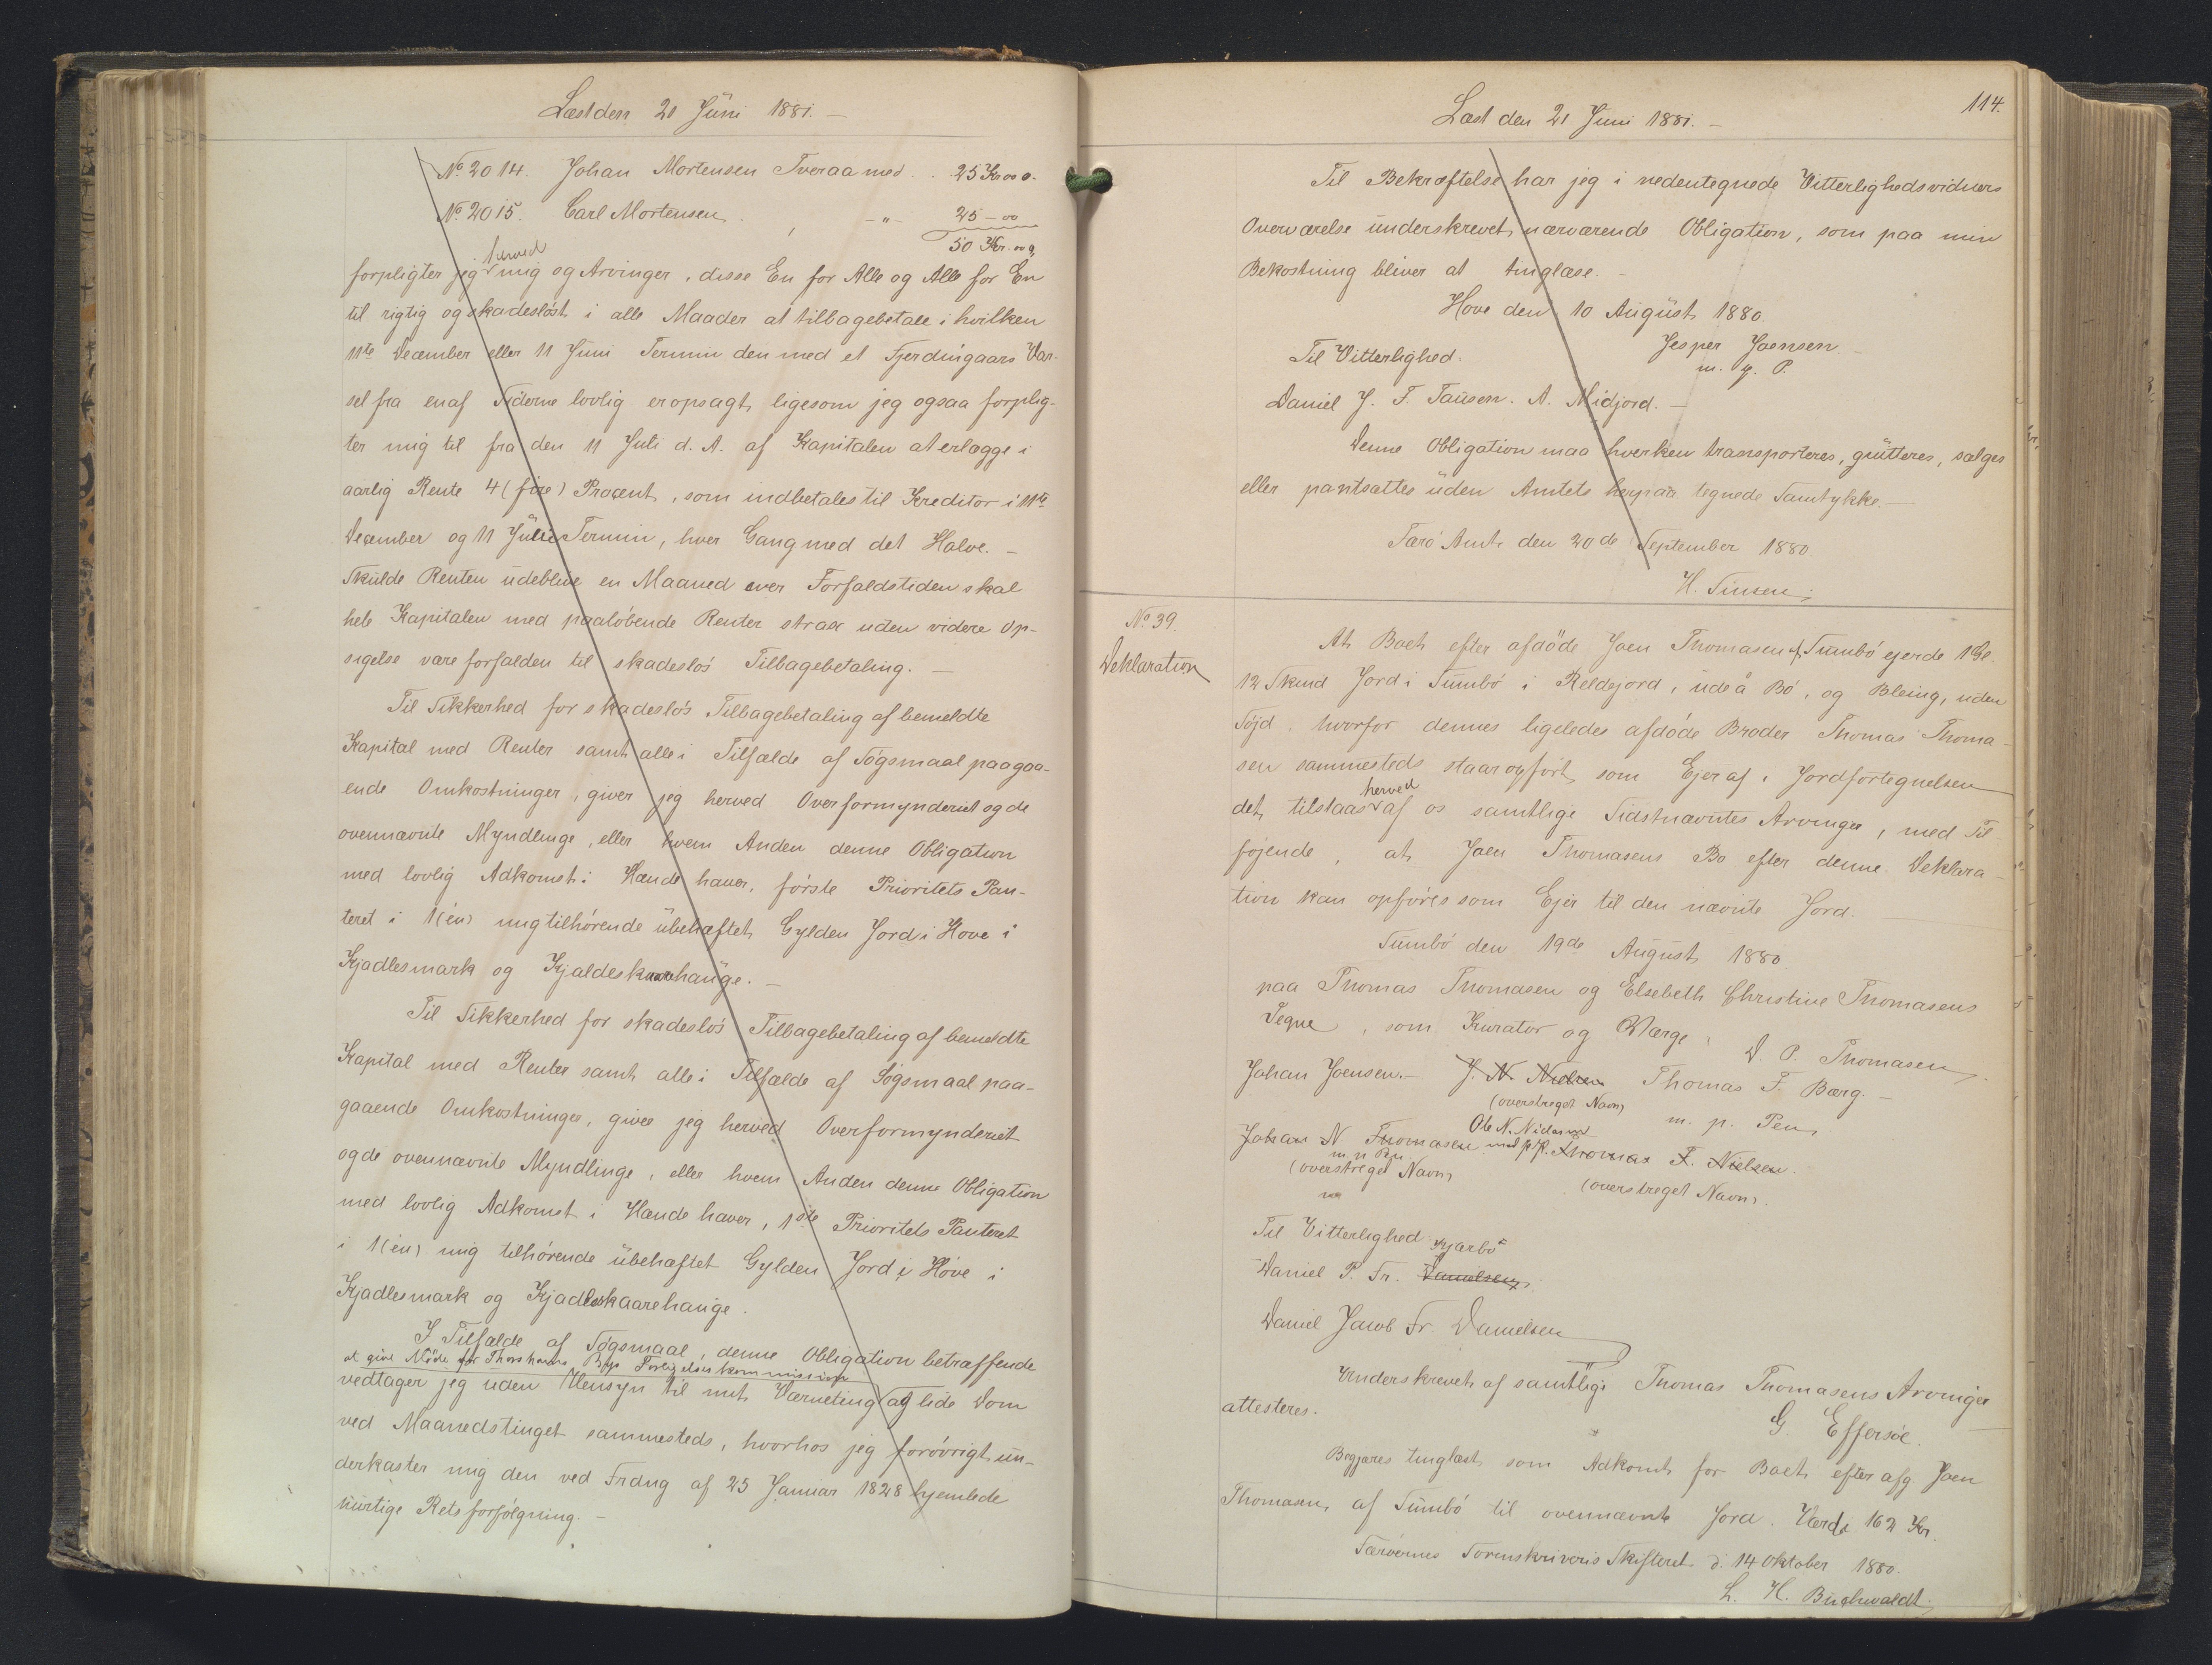 Læst den 21 Juni 1881. —
No. 2014. Johan Mortensen Tveraa med . . 25 Kr 00 ø.
No. 2015. Carl Mortensen, — " — 25 — 00
50 Kr. 00 ø,
herved
forpligter jeg mig og Arvinger, disse En for Alle og Alle for En
til rigtig og skadesløst i alle Maader at tilbagebetale i hvilken
11te December eller 11 Juni Termin den med et Fjerdingaars Var-
sel fra en af Siderne lovlig er opsagt, ligesom jeg ogsaa forplig-
ter mig til fra den 11 Juli d. A. af Kapitalen at erlægge i
aarlig Rente 4 (fire) Procent, som indbetales til Kreditor i 11te
December og 11 Juni Termin, hver Gang med det Halve. —
Skulde Renten udeblive en Maaned over Forfaldstiden skal
hele Kapitalen med paaløbende Renter strax uden videre Op-
sigelse være forfalden til skadesløs Tilbagebetaling. —
Til Sikkerhed for skadesløs Tilbagebetaling af bemeldte
Kapital med Renter samt alle i Tilfælde af Søgsmaal paagaa-
ende Omkostninger, giver jeg herved Overformynderiet og de
ovennævnte Myndlinge, eller hvem Anden denne Obligation
med lovlig Adkomst i Hænde haver, første Prioritets Pan-
teret i 1 (én) mig tilhørende übehæftet Gylden Jord i Hove i
Kjadlesmark og Kjaldeskaarehauge. —
Til Sikkerhed for skadesløs Tilbagebetaling af bemeldte
Kapital med Renter samt alle i Tilfælde af Søgsmaal paa-
gaaende Omkostninger, giver jeg herved Overformynderiet
og de ovennævnte Myndlinge, eller hvem Anden denne Obligation
med lovlig Adkomst i Hænde haver, 1ste Prioritets Panteret
i 1 (én) mig tilhørende übehæftet Gylden Jord i Hove i
Kjadlesmark og Kjadleskaarehauge.
I Tilfælde af Søgsmaal, denne Obligation betræffende
at give Møde for Thorshavns Bys Forligelseskommission
vedtager jeg uden Hensyn til mit Værneting og lide Dom
ved Maanedstinget sammesteds, hvorhos jeg forøvrigt un-
derkaster mig den ved Frdng af 25 Januar 1828 hjemlede
hurtige Retsforfølgning. —
Læst den 21 Juni 1881. —
114.
Til Bekræftelse har jeg i nedentegnede Vitterlighedsvidners
Overværelse underskrevet nærværende Obligation, som paa min
Bekostning bliver at tinglæse. —
Hove den 10 August 1880.
Jesper Joensen
m. f. P.
Til Vitterlighed.
Daniel J. F. Tausen. A. Midjord. —
Denne Obligation maa hverken transporteres, qvitteres, sælges
eller pantsættes uden Amtets herpaa tegnede Samtykke. —
Færø Amt, den 20de September 1880
H. Finsen,
No. 39.
Deklaration
At Boet efter afdøde Joen Thomasen af Sumbø ejede 1 Gl.
12 Skind Jord i Sumbø i Reldejord, ude å Bø, og Bleing, uden
Søjd. hvorfor dennes ligeledes afdøde Broder Thomas Thoma-
sen sammesteds staar opført som Ejer af i Jordfortegnelsen
herved
det, tilstaas af os samtlige Sidstnævntes Arvinger, med Til
føjende, at Joen Thomasens Bo efter denne Deklara-
tion kan opføres som Ejer til den nævnte Jord.
Sumbø den 19de August 1880
paa Thomas Thomasen og Elsebeth Christine Thomasens
Vegne, som Kurator og Værge, D. P. Thomasen,
Johan Joensen. — J. N. Nielsen Thomas F. Bærg. —
(overstreget Navn) m. p. Pen,
Ole N. Nidarud
Johan N Thomasen med p.P. Thomas F. Nielsen.
m. p. Pen
(overstreget Navn) (overstreget Navn).
Til Vitterlighed
Kjærbø
Daniel P. Fr. Danielsen,
Daniel Jacob Fr. Danielsen
Underskrevet af samtlige Thomas Thomasens Arvinger
attesteres. —
G. Effersøe.
Begjæres tinglæst som Adkomst for Boet efter afg. Joen
Thomasen, af Sumbø til ovennævnte Jord. Værdi 162 Kr.
Færøernes Sorenskriveris Skifteret d. 14 Oktober 1880.
L. H. Buchwaldt,